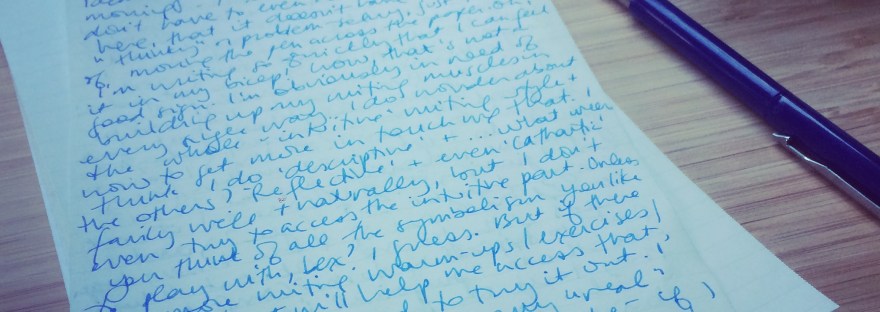 moving
don't have to even
here, that it doesn't have
"thinky" problem
of moving the pen across the paper. oh!
I'm writing so quickly that I can feel
it in my bicep! Wow, that's not a
good sign. I'm obviously in need of
building up my writing muscles in
every single way. I do wonder about
the whole 'intuitive' writing style +
how to get more in touch w/ that. I
think I do 'descriptive' + ... what were
the others? 'Reflective' + even 'cathartic'
fairly well + naturally, but I don't
even try to access the intuitive part. Unless
you think of all the symbolism you like
to play with, Lex? I guess. But if there
more writing warm-ups/exercises/
will help me access that,
to try it out. I
unreal